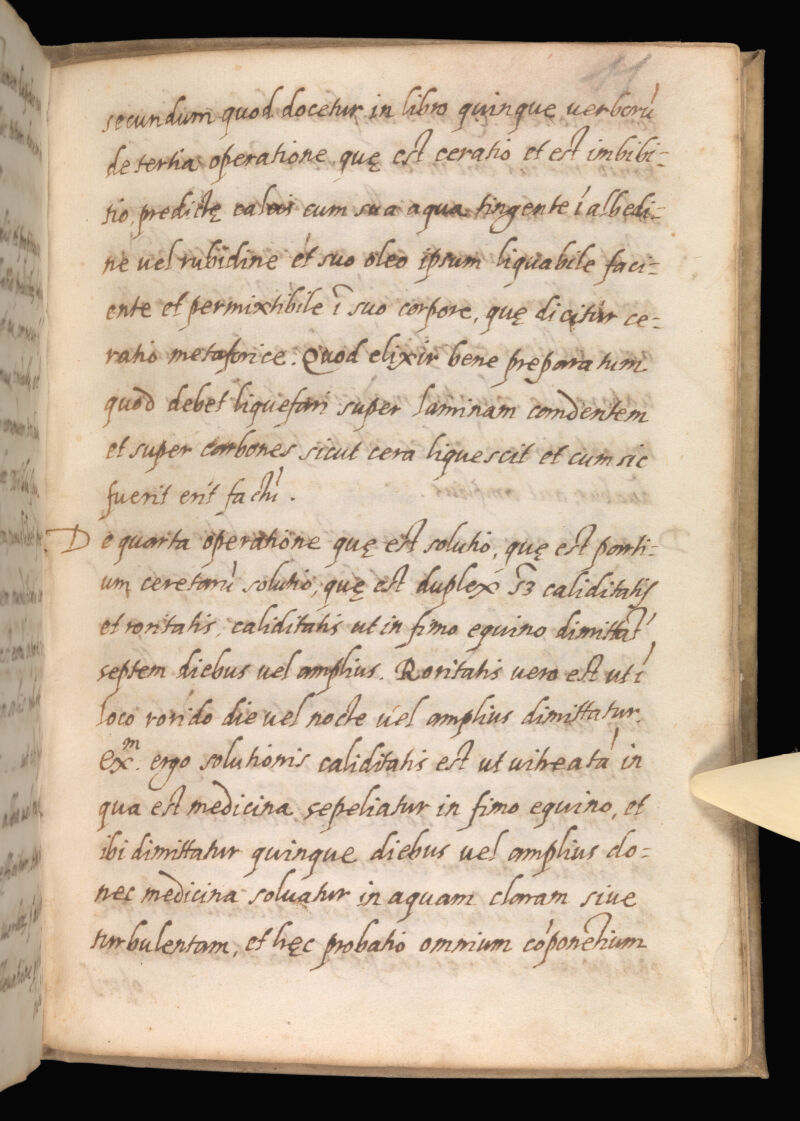 secundum quod docetur in libro quinque verborũ
de tertia operatione quę est ceratio et est imbibi=
tio predictę calcis cum sua aqua tingente ĩ albedi=
ne vel rubidine et suo oleo ipsum liquabile faci=
ente et permixtibile ĩ suo corpore, quę dicitur ce=
ratio metaforice. Quod elixir bene preparatum
quod debet liquefari super laminam candentem
et super carbones sicut cera liquescit et cum sic
fuerit erit factũ.
De quarta operatione quę est solutio, quę est parti=
um ceratarũ solutio, quę est duplex s̃ȝ caliditatis
et roritatis, caliditatis ut in fimo equino dimittat̃
septem diebus vel amplius. Roritatis vero est ut ĩ
loco rorido die vel nocte vel amplius dimittatur.
exm. ergo solutionis caliditatis est ut vitreatã in
qua est medicina sepeliatur in fimo equino, et
ibi dimittatur quinque diebus vel amplius do=
nec medicina solvatur in aquam claram sive
turbulentam, et hęc probatio omnium cõponentium